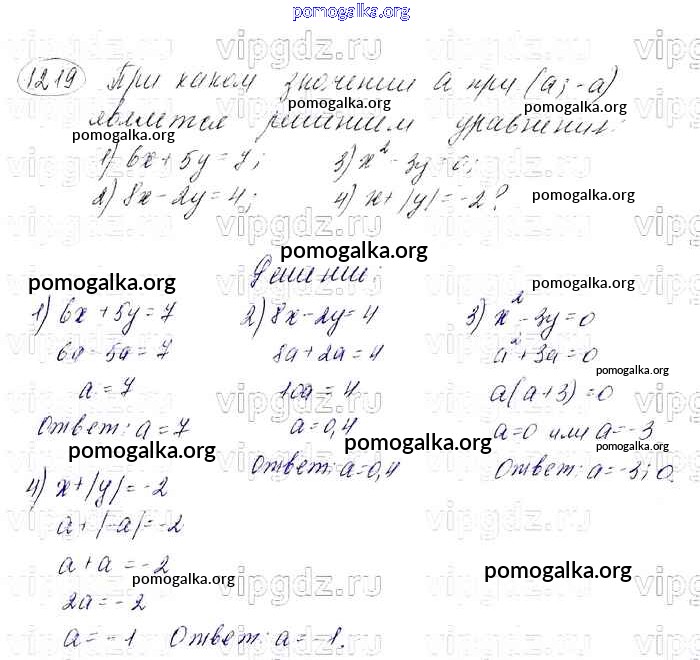 pomogalka.org
1219 При каком значении a пр (a; -a)
является решением уравнения:
1) 6x + 5y = 7;
2) 8x - 2y = 4;
3) x² - 3y = 0;
4) x + |y| = -2?
Решение:
1) 6x + 5y = 7
6a - 5a = 7
a = 7
Ответ: a = 7
2) 8x - 2y = 4
8a + 2a = 4
10a = 4
a = 0,4
Ответ: a = 0,4
3) x² - 3y = 0
a² + 3a = 0
a(a + 3) = 0
a = 0 или a = -3
Ответ: a = -3; 0.
4) x + |y| = -2
a + |-a| = -2
a + a = -2
2a = -2
a = -1 Ответ: a = -1.
pomogalka.org
vipgdz.ru